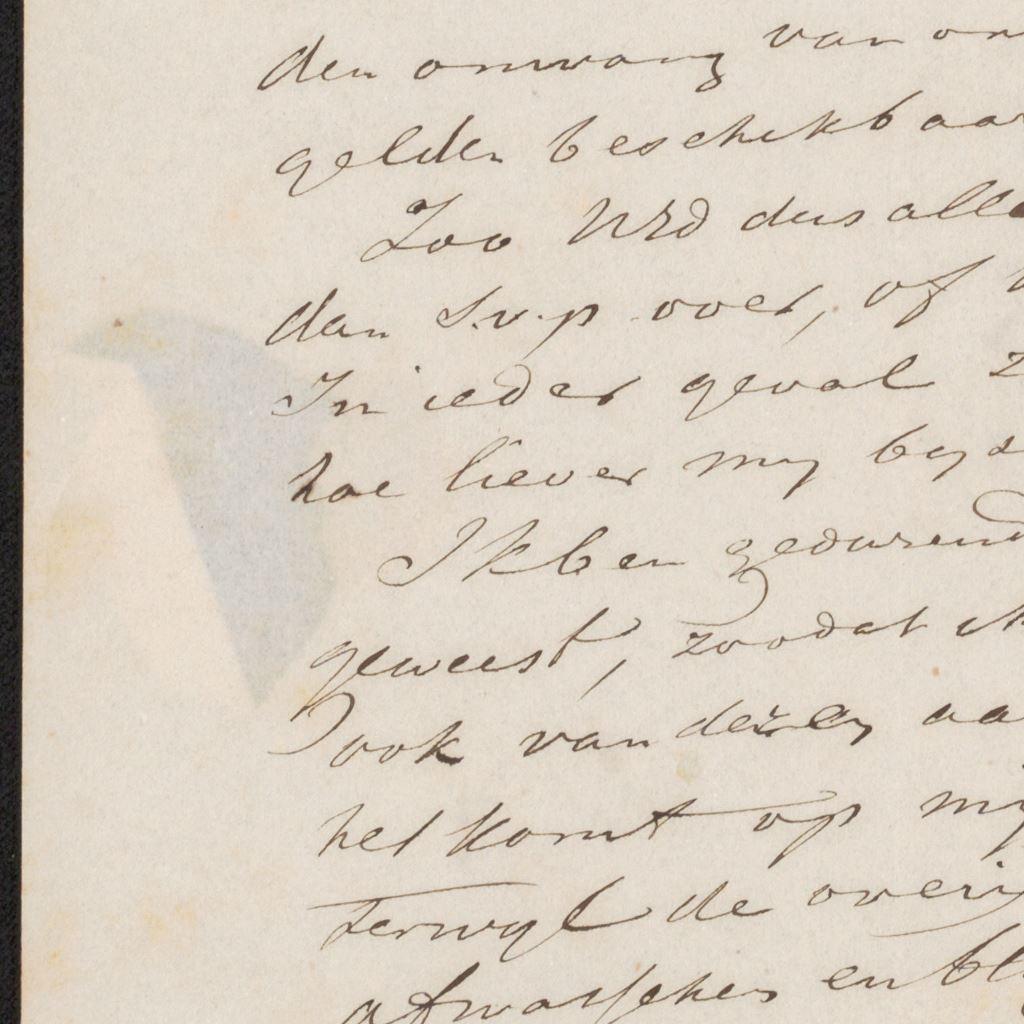 den omvang van on
gelden beschikbaar
Zoo UEd dus alle
dan s.v.p over, of
In ieder geval z
hoe liever my bys
Ik ben gedurend
geweest, zoodat ik
ook van dezen aa
het komt op my
Terwyl de overi
afwasschen en bl